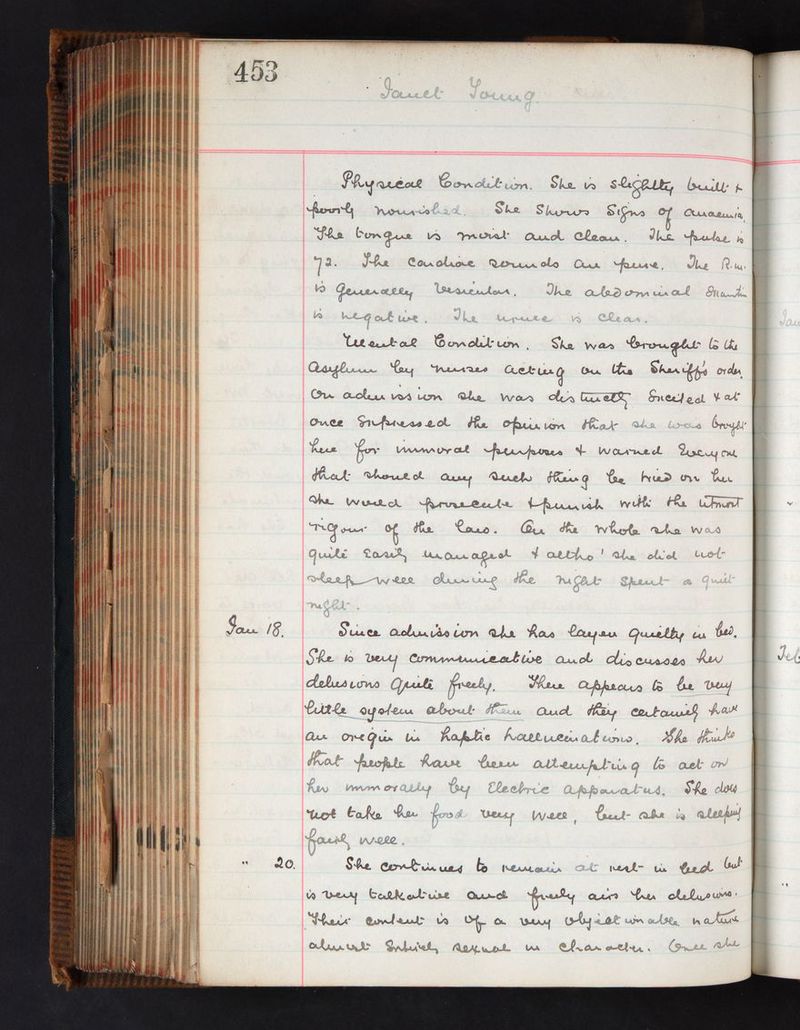 453
Janet Young.
Physical Condition. She is slightly built &
poorly nourished. She shows signs of anaemia.
The tongue is moist and clean. The pulse is
72. The cardiac sounds are pure. The R.m.
is generally vesicular. The abdominal Examtn
is negative. The urine is clear.
Mental Condition. She was brought to the
Asylum by nurses acting on the Sheriff's order.
On admission she was distinctly Excited & at
once Expressed the opinion that she was brought
here for immoral purposes & warned Everyone
that should any such thing be tried on her
she would prosecute & punish with the utmost
rigour of the law. On the whole she was
quite Easily managed & altho' she did not
sleep well during the night spent a quiet
night.
Jan 18. Since admission she has layen quietly in bed.
She is very communicative and discusses her
delusions quite freely. There appears to be very
little system about them and they certainly have
an origin in haptic hallucinations. She thinks
that people have been attempting to act on
her immorally by Electric apparatus. She does
not take her food very well, but she is sleeping
fairly well.
" 20. She continues to remain at rest in bed but
is very talkative and freely airs her delusions.
Their content is of a very objectionable nature
almost Entirely sexual in character. Once she